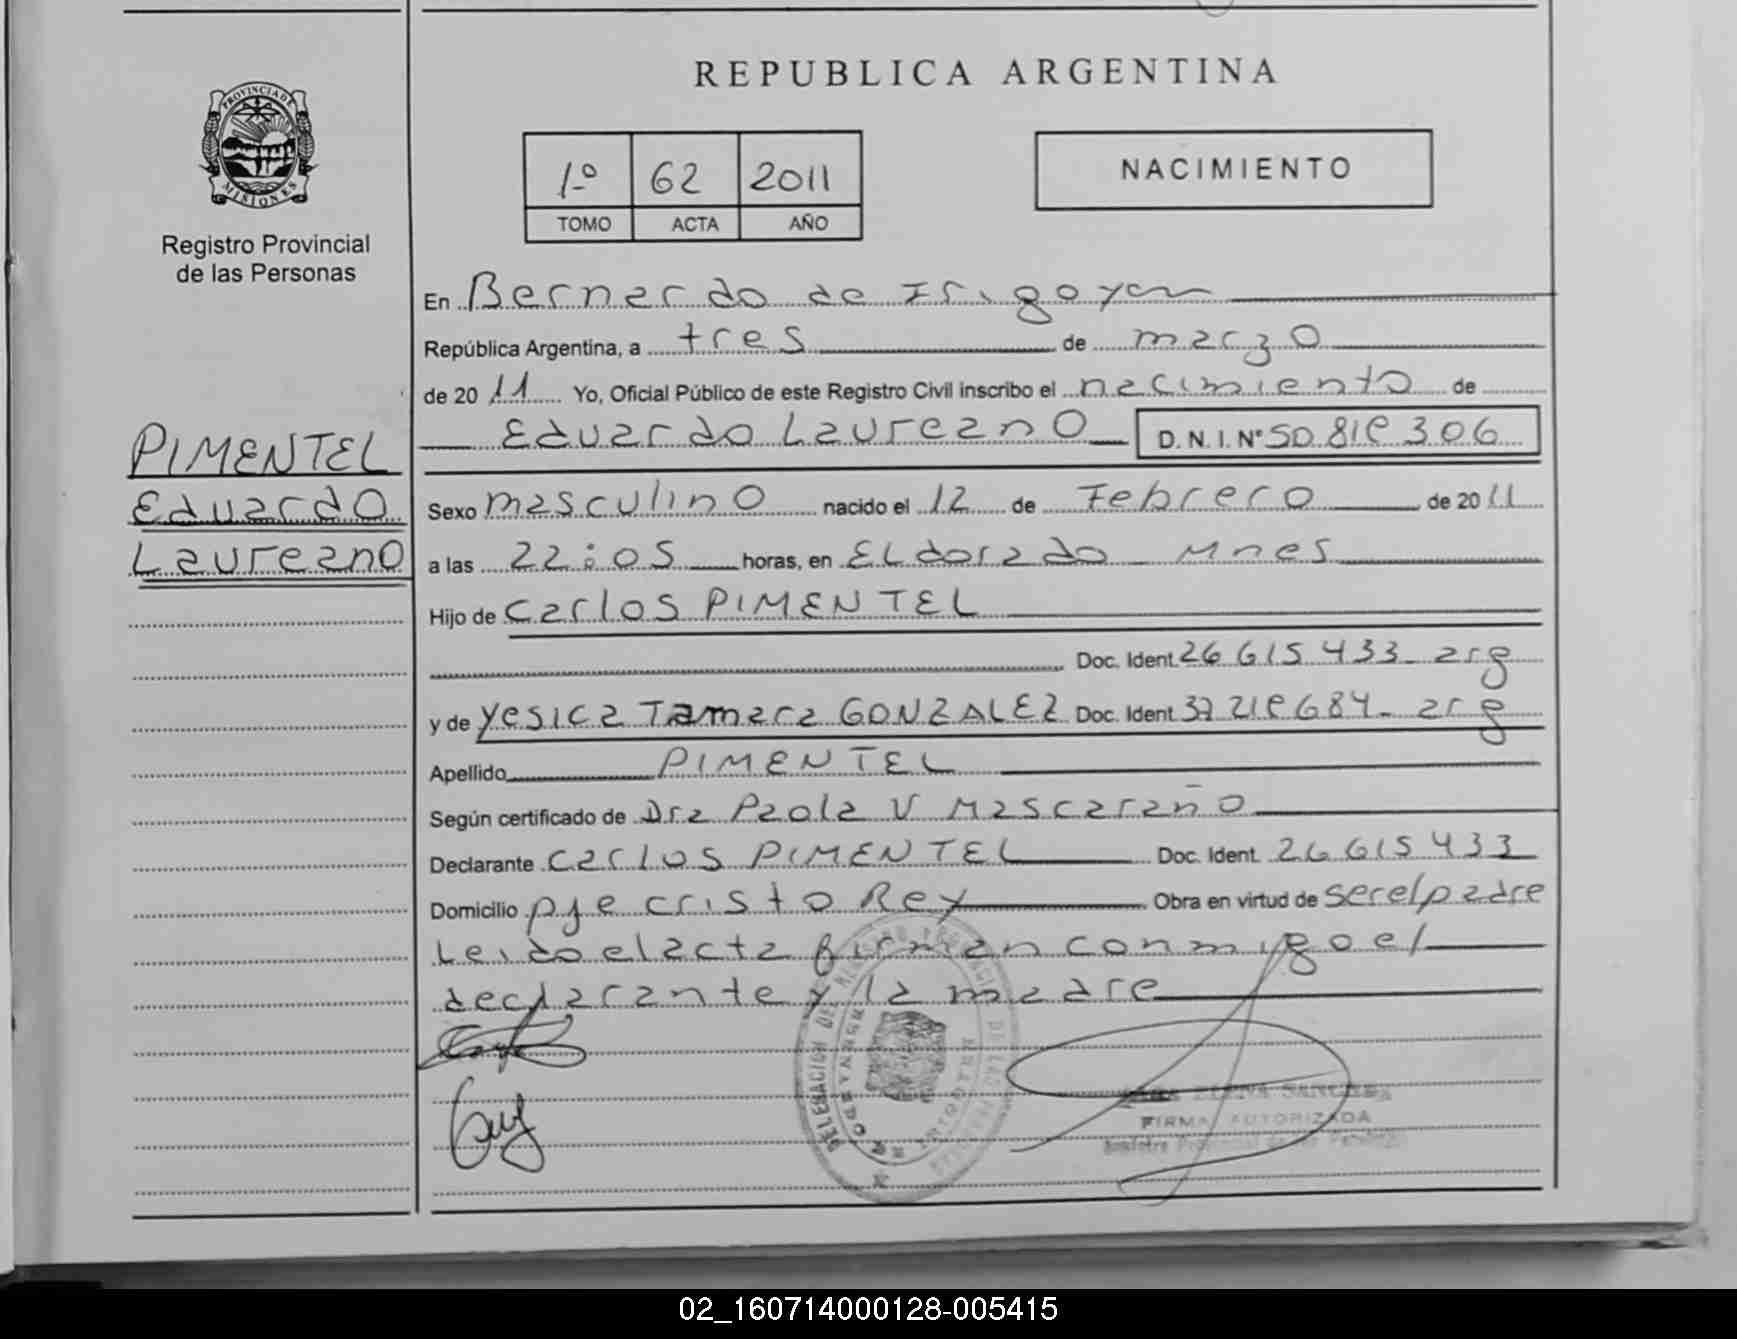 REPUBLICA ARGENTINA
PROVINCIA DE
MISIONES
Registro Provincial
de las Personas
1º 62 2011
TOMO ACTA AÑO
NACIMIENTO
En Bernardo de Irigoyen
República Argentina, a tres de marzo
de 20 11 Yo, Oficial Público de este Registro Civil inscribo el nacimiento de
Eduardo Laureano D.N.I.Nº
PIMENTEL
Eduardo
Laureano
Sexo masculino nacido el 12 de Febrero de 20 11
a las 22:05 horas, en ELdorado Mnes
Hijo de Carlos PIMENTEL
Doc. Ident. 26 615 433 - arg
y de Yesica Tamara GONZALEZ Doc. Ident. arg
Apellido PIMENTEL
Según certificado de Dra Paola V Mascaraño
Declarante Carlos PIMENTEL Doc. Ident. 26 615 433
Domicilio pje cristo Rey Obra en virtud de ser el padre
Leido el acta firman conmigo el
declarante y la madre
ELENA SANCHEZ
FIRMA AUTORIZADA
02_160714000128-005415